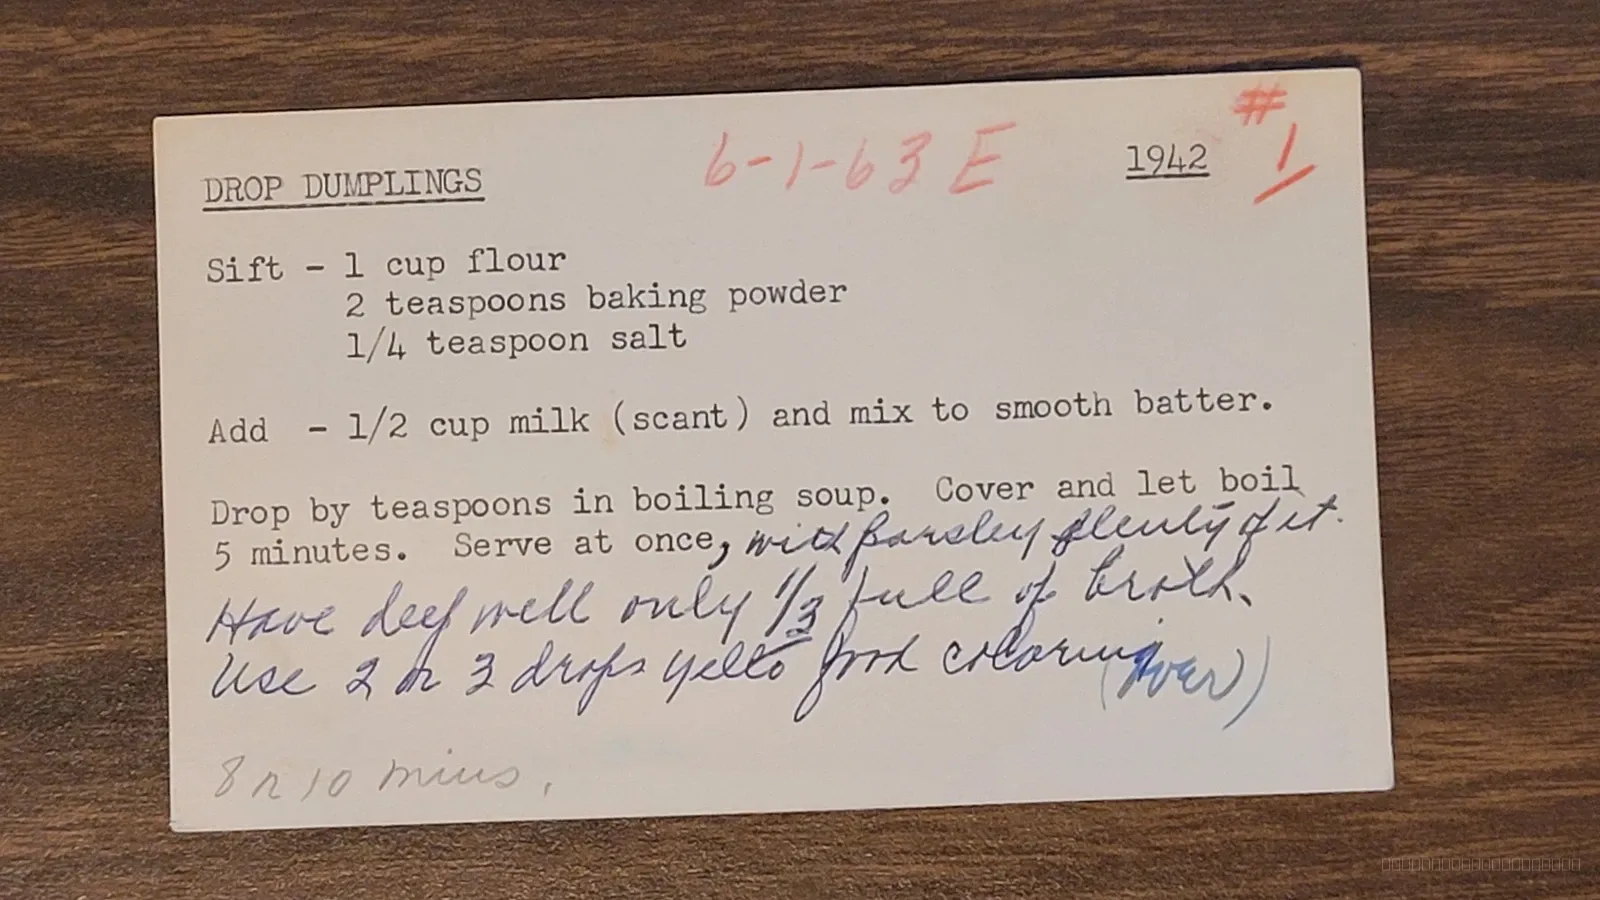 #1
DROP DUMPLINGS 6-1-63 E 1942
Sift - 1 cup flour
2 teaspoons baking powder
1/4 teaspoon salt
Add - 1/2 cup milk (scant) and mix to smooth batter.
Drop by teaspoons in boiling soup. Cover and let boil
5 minutes. Serve at once, with parsley plenty of it.
Have deep well only 1/3 full of broth.
Use 2 or 3 drops yello food coloring
(over)
8 or 10 mins.